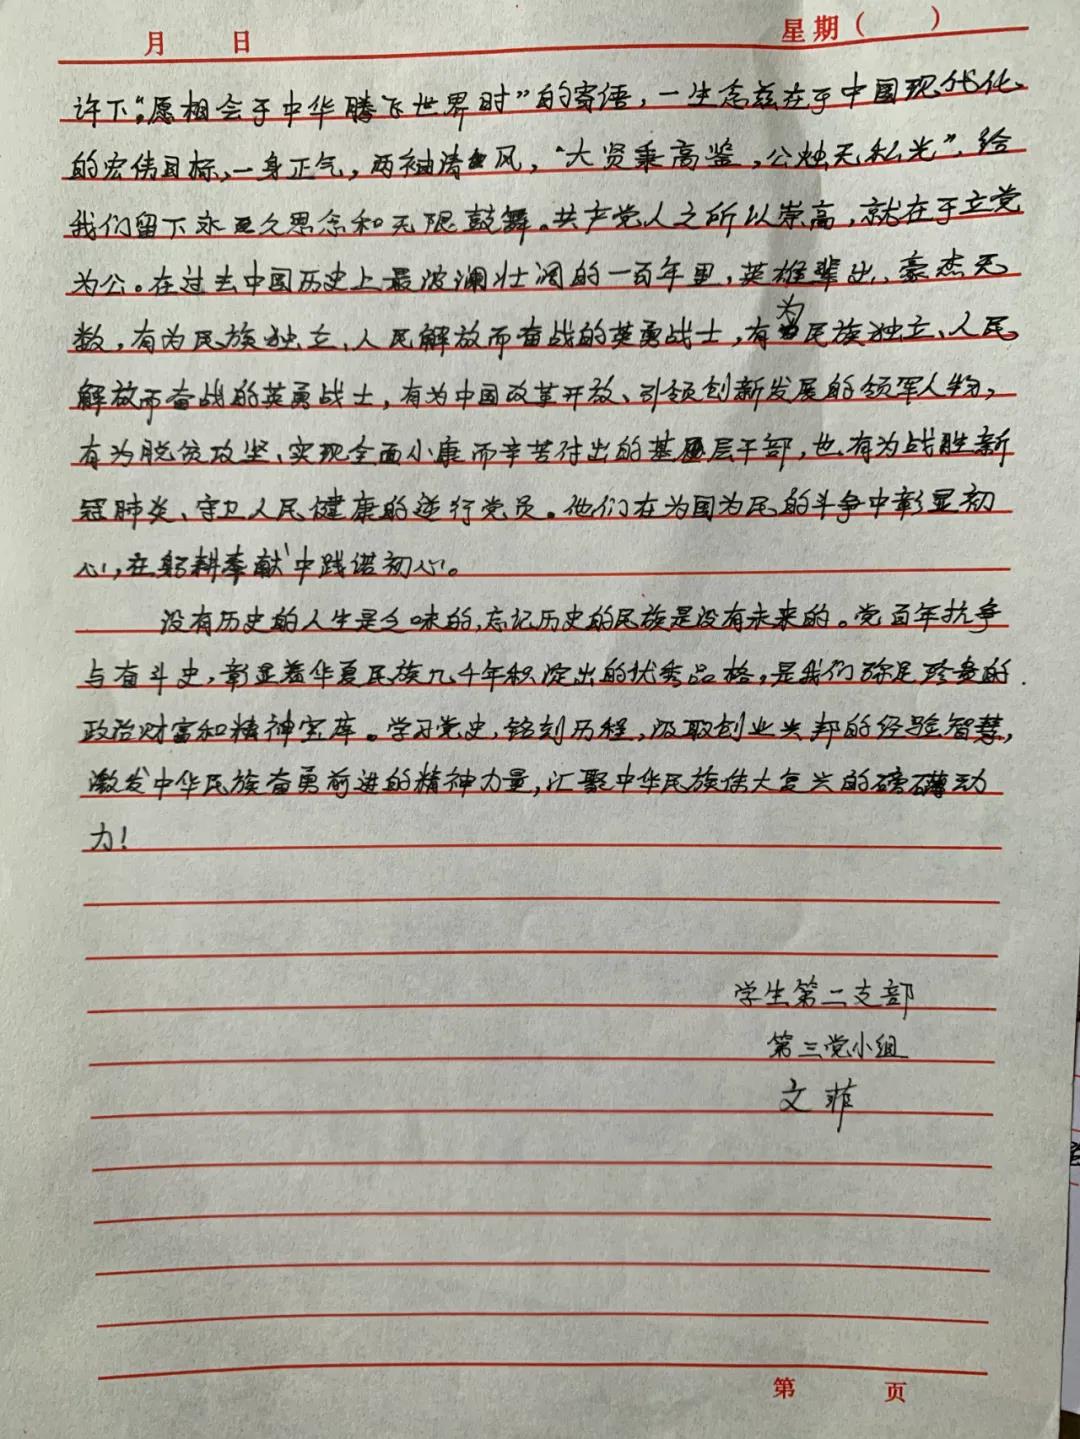 月 日 星期( )
许下“愿相会于中华腾飞世界时”的寄语，一生念兹在于中国现代化
的宏伟目标，一身正气，两袖清风，“大贤秉高鉴，公烛无私光”，给
我们留下永久思念和无限鼓舞。共产党人之所以崇高，就在于立党
为公。在过去中国历史上最波澜壮阔的一百年里，英雄辈出、豪杰无
数，有为民族独立、人民解放而奋战的英勇战士，有为民族独立、人民
解放而奋战的英勇战士，有为中国改革开放、引领创新发展的领军人物，
有为脱贫攻坚、实现全面小康而辛苦付出的基层干部，也有为战胜新
冠肺炎、守卫人民健康的逆行党员。他们在为国为民的斗争中彰显初
心，在躬耕奉献中践诺初心。
没有历史的人生是乏味的，忘记历史的民族是没有未来的。党百年抗争
与奋斗史，彰显着华夏民族几千年积淀出的优秀品格，是我们弥足珍贵的
政治财富和精神宝库。学习党史，铭刻历程，汲取创业兴邦的经验智慧，
激发中华民族奋勇前进的精神力量，汇聚中华民族伟大复兴的磅礴动
力！
学生第二支部
第三党小组
文菲
第 页